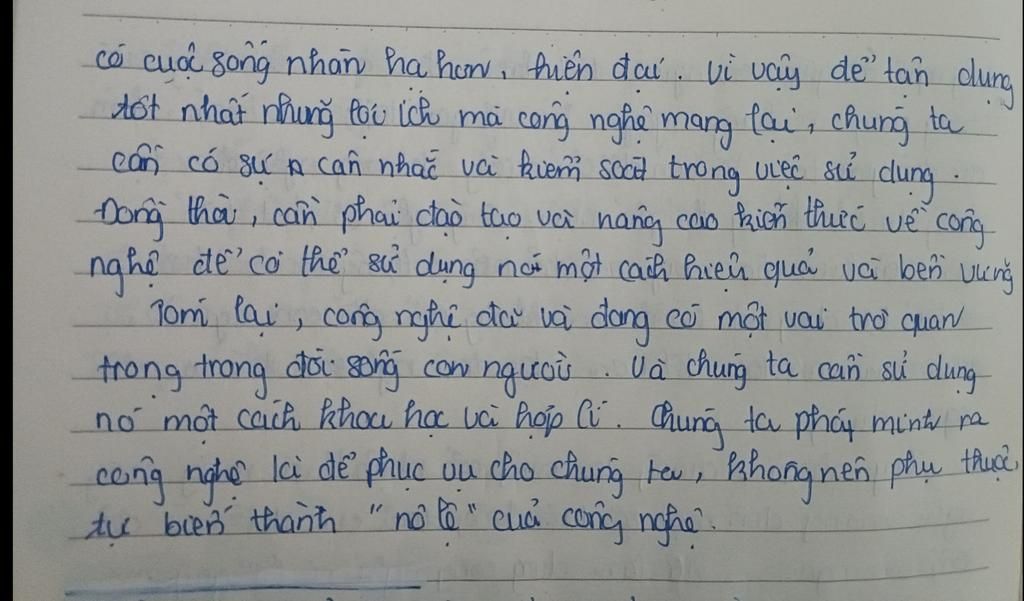 có cuộc sống nhàn hạ hơn, hiện đại. Vì vậy để tận dụng
tốt nhất những lợi ích mà công nghệ mang lại, chúng ta
cần có sự cân nhắc và kiểm soát trong việc sử dụng.
Đồng thời, cần phải đào tạo và nâng cao kiến thức về công
nghệ để có thể sử dụng nó một cách hiệu quả và bền vững
Tóm lại, công nghệ đã và đang có một vai trò quan
trọng trong đời sống con người. Và chúng ta cần sử dụng
nó một cách khoa học và hợp lí. Chúng ta phát minh ra
công nghệ là để phục vụ cho chúng ta, không nên phụ thuộc,
tự biến thành "nô lệ" của công nghệ.